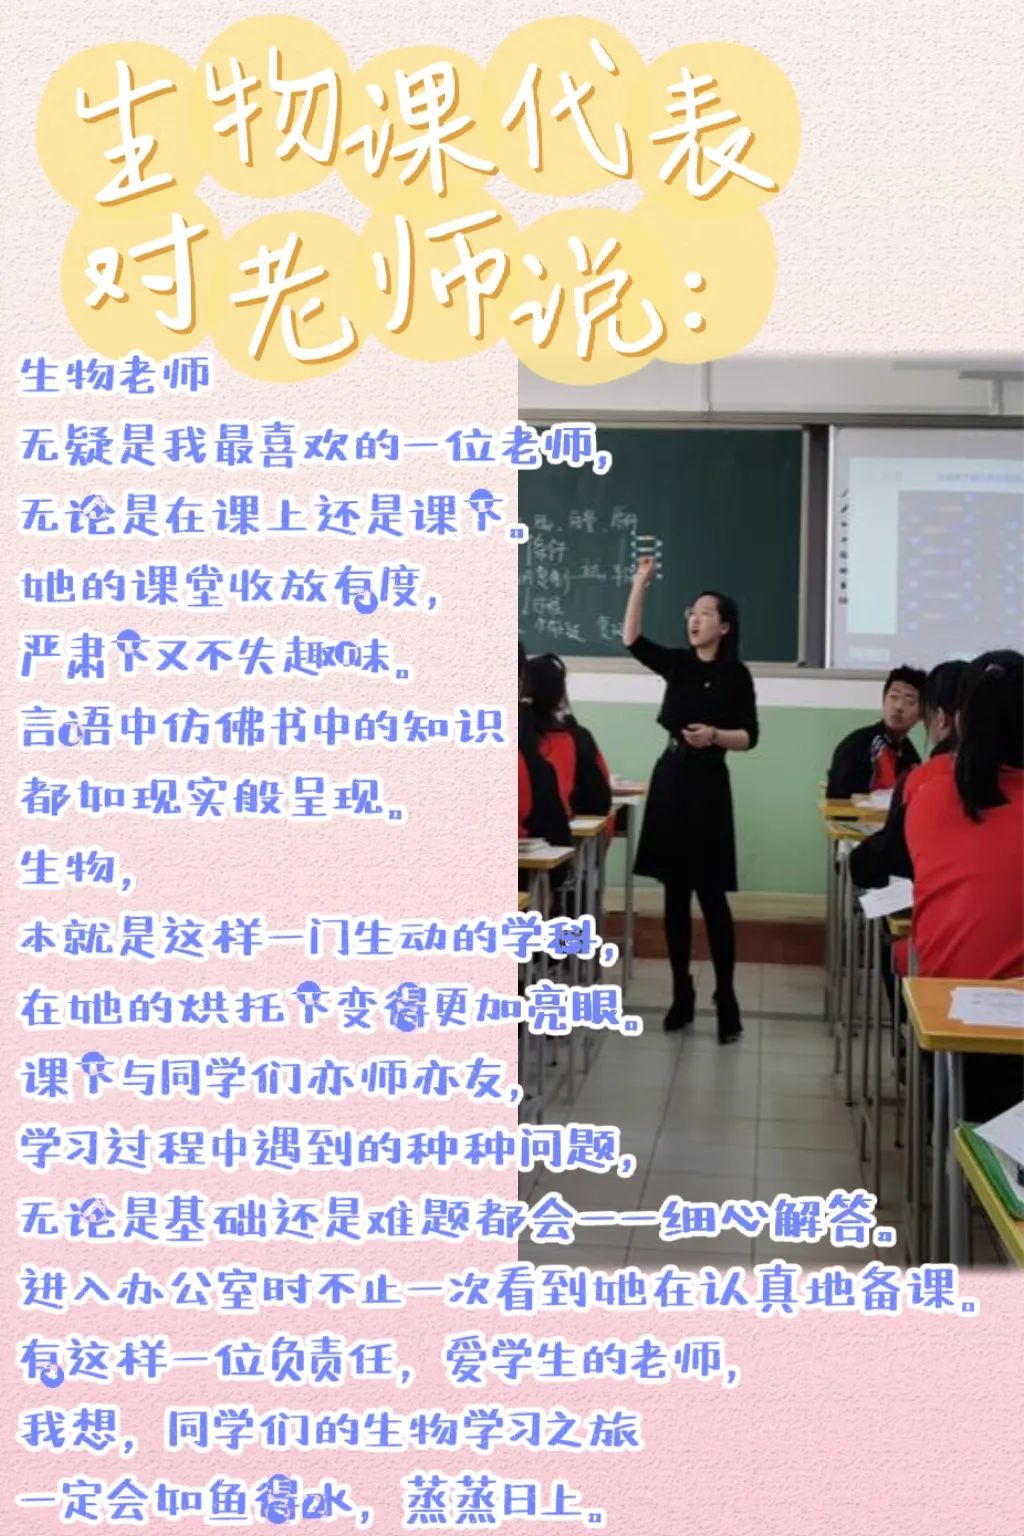 生物课代表
对老师说：
生物老师
无疑是我最喜欢的一位老师，
无论是在课上还是课下。
她的课堂收放有度，
严肃下又不失趣味。
言语中仿佛书中的知识
都如现实般呈现。
生物，
本就是这样一门生动的学科，
在她的烘托下变得更加亮眼。
课下与同学们亦师亦友，
学习过程中遇到的种种问题，
无论是基础还是难题都会一一细心解答。
进入办公室时不止一次看到她在认真地备课。
有这样一位负责任，爱学生的老师，
我想，同学们的生物学习之旅
一定会如鱼得水，蒸蒸日上。